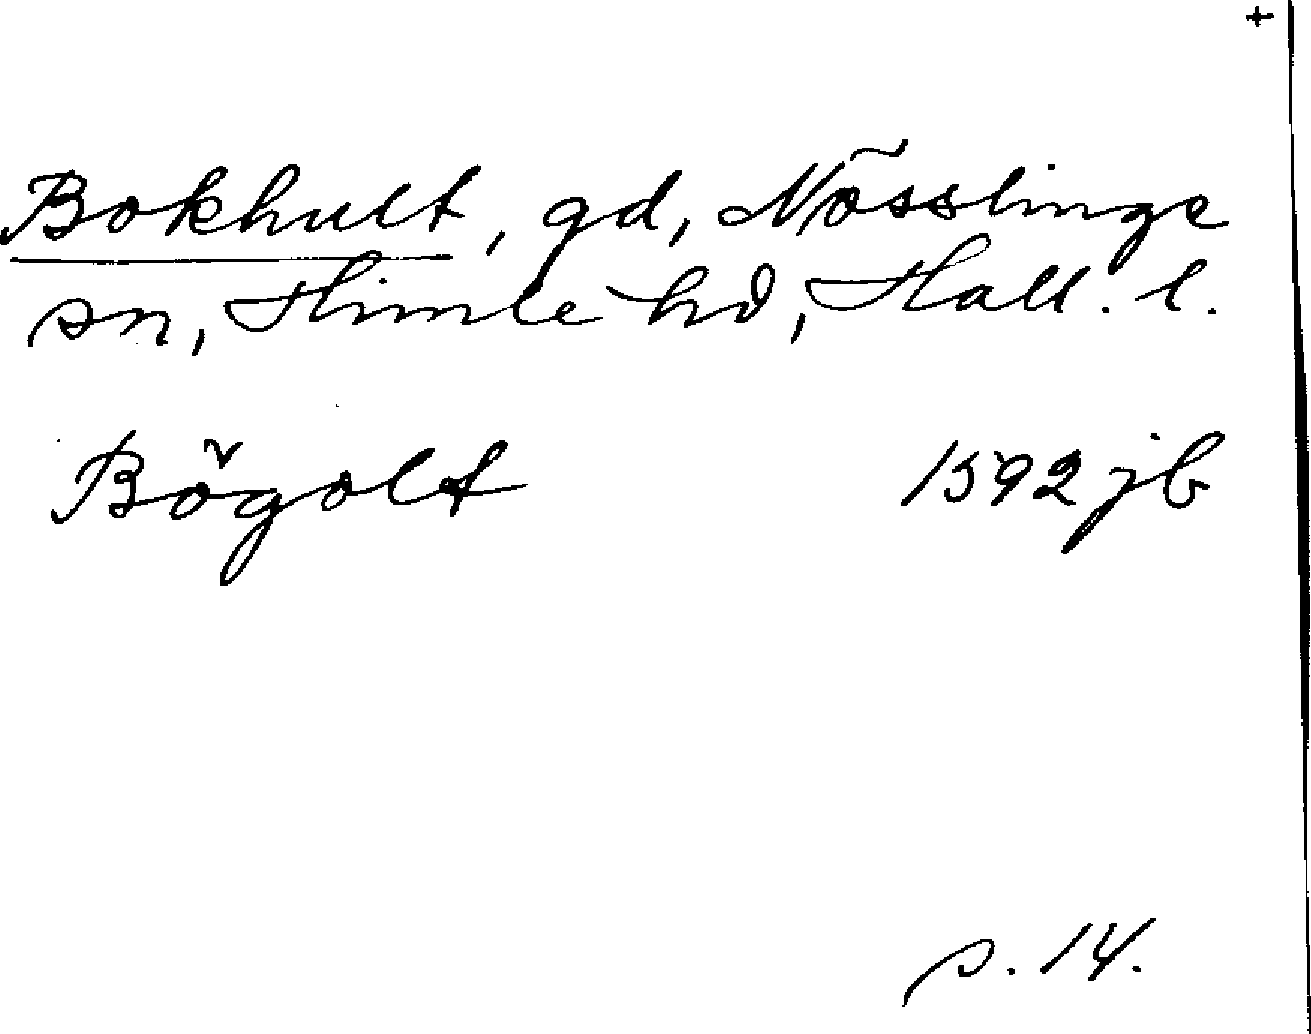 +
Bokhult, gd, Nösslinge
sn, Himle hd, Hall. l.
Bögolt 1592 jb
s. 14.